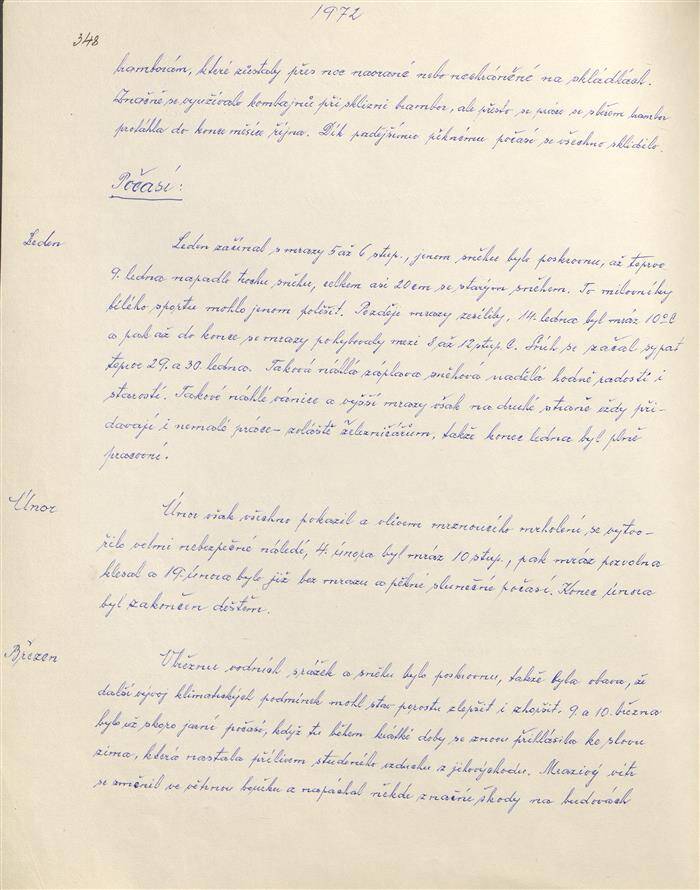 1972
348
bramborám, které zůstaly přes noc naorané nebo nesháněné na skládkách.
Značně se využívalo kombajnů při sklizni brambor, ale přesto se práce se sběrem brambor
protáhla do konce měsíce října. Dík pozdějšímu pěknému počasí se všechno sklidilo.
Počasí:
Leden
Leden začínal s mrazy 5 až 6 stup., jenom sněhu bylo poskrovnu, až teprve
9. ledna napadlo trochu sněhu, celkem asi 20 cm se starým sněhem. To milovníky
bílého sportu mohlo jenom potěšit. Později mrazy zesílily, 14. ledna byl mráz 10° C
a pak až do konce se mrazy pohybovaly mezi 8 až 12 stup. C. Sníh se začal sypat
teprve 29. a 30. ledna. Taková náhlá záplava sněhová nadělá hodně radosti i
starostí. Takové náhlé vánice a vyšší mrazy však na druhé straně vždy při-
davají i nemalé práce - zvláště železničářům, takže konec ledna byl plně
pracovní.
Únor
Únor však všechno pokazil a vlivem mrznoucího mrholení se vytvo-
řilo velmi nebezpečné náledí, 4. února byl mráz 10 stup., pak mráz pozvolna
klesal a 19. února bylo již bez mrazu a pěkné slunečné počasí. Konec února
byl zakončen deštěm.
Březen
V březnu vodních srážek a sněhu bylo poskrovnu, takže byla obava, že
další vývoj klimatických podmínek mohl stav porostu zlepšit i zhoršit. 9. a 10. března
bylo už skoro jarní počasí, když tu během krátké doby se znovu přihlásila ke slovu
zima, která nastala přílivem studeného vzduchu z jihovýchodu. Mrazivý vítr
se změnil ve větrnou bouřku a napáchal někde značné škody na budovách